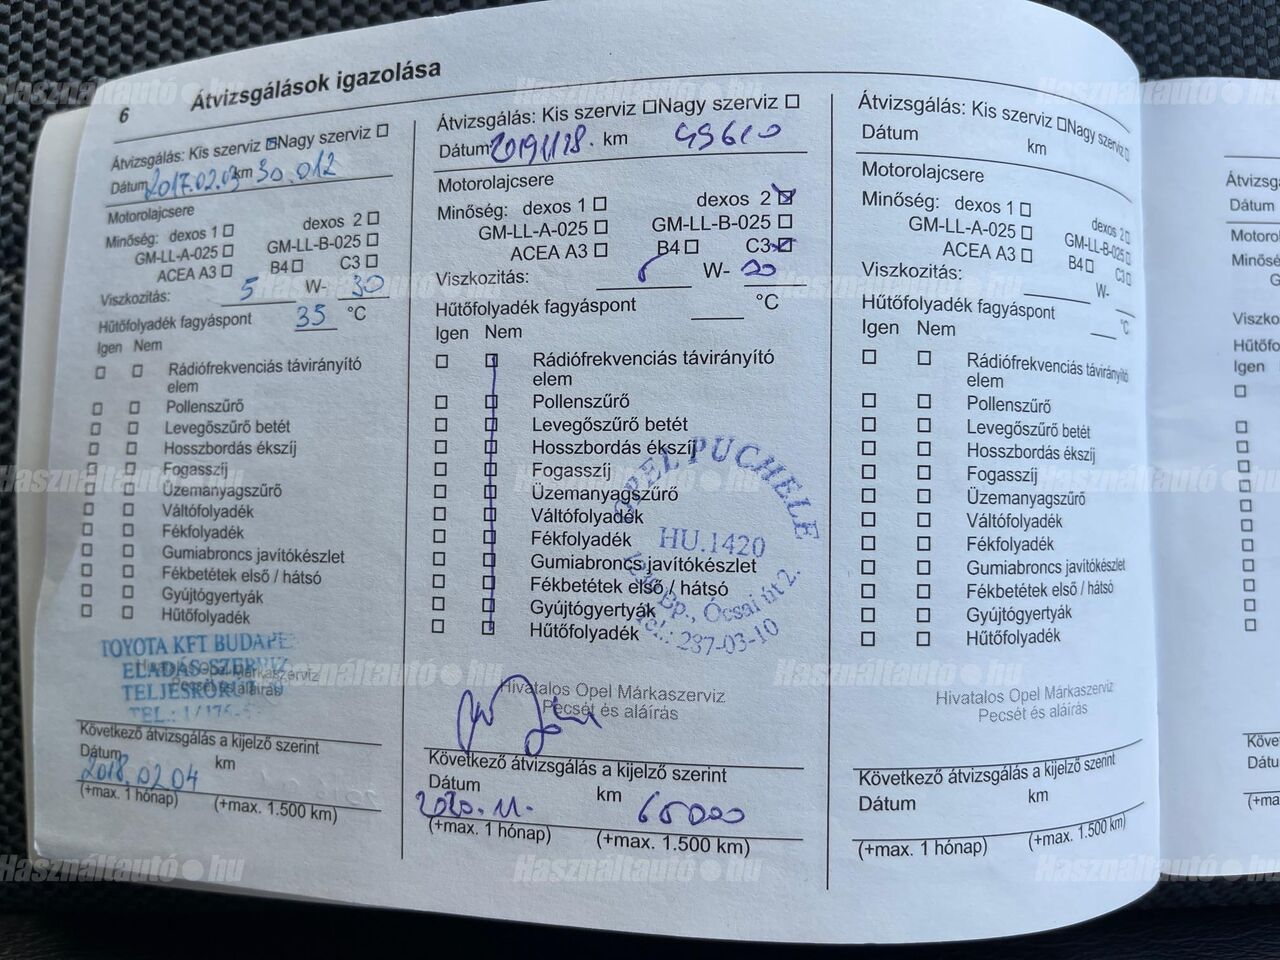 6
Átvizsgálások igazolása
Átvizsgálás: Kis szerviz Nagy szerviz
Dátum 2017.02.03 km 30.012
Motorolajcsere
Minőség: dexos 1 dexos 2
GM-LL-A-025 GM-LL-B-025
ACEA A3 B4 C3
Viszkozitás: 5 W- 30
Hűtőfolyadék fagyáspont 35 °C
Igen Nem
Rádiófrekvenciás távirányító
elem
Pollenszűrő
Levegőszűrő betét
Hosszbordás ékszíj
Fogasszíj
Üzemanyagszűrő
Váltófolyadék
Fékfolyadék
Gumiabroncs javítókészlet
Fékbetétek első / hátsó
Gyújtógyertyák
Hűtőfolyadék
TOYOTA KFT BUDAPE
ELADÁS-SZERVIZ
Hivatalos Opel Márkaszerviz
Pecsét és aláírás
TEL.: 1/176-5
Következő átvizsgálás a kijelző szerint
Dátum km
2018.02.04
(+max. 1 hónap) (+max. 1.500 km)
Átvizsgálás: Kis szerviz Nagy szerviz
Dátum 20191128. km 49610
Motorolajcsere
Minőség: dexos 1 dexos 2
GM-LL-A-025 GM-LL-B-025
ACEA A3 B4 C3
Viszkozitás: W- 30
Hűtőfolyadék fagyáspont °C
Igen Nem
Rádiófrekvenciás távirányító
elem
Pollenszűrő
Levegőszűrő betét
Hosszbordás ékszíj
Fogasszíj
Üzemanyagszűrő
Váltófolyadék
Fékfolyadék
Gumiabroncs javítókészlet
Fékbetétek első / hátsó
Gyújtógyertyák
Hűtőfolyadék
OPEL PUCHELE
HU.1420
Bp., Ócsai út 2.
Tel.: 287-03-10
Hivatalos Opel Márkaszerviz
Pecsét és aláírás
Következő átvizsgálás a kijelző szerint
Dátum km
2020.11. 65000
(+max. 1 hónap) (+max. 1.500 km)
Átvizsgálás: Kis szerviz Nagy szerviz
Dátum km
Motorolajcsere
Minőség: dexos 1 dexos 2
GM-LL-A-025 GM-LL-B-025
ACEA A3 B4 C3
Viszkozitás: W-
Hűtőfolyadék fagyáspont °C
Igen Nem
Rádiófrekvenciás távirányító
elem
Pollenszűrő
Levegőszűrő betét
Hosszbordás ékszíj
Fogasszíj
Üzemanyagszűrő
Váltófolyadék
Fékfolyadék
Gumiabroncs javítókészlet
Fékbetétek első / hátsó
Gyújtógyertyák
Hűtőfolyadék
Hivatalos Opel Márkaszerviz
Pecsét és aláírás
Következő átvizsgálás a kijelző szerint
Dátum km
(+max. 1 hónap) (+max. 1.500 km)
Használtautó.hu